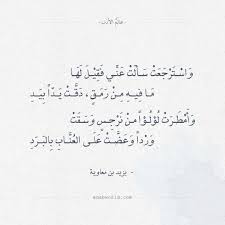 عالم الأدب
وَاسْتَرْجَعَتْ سَأَلَتْ عَنِّي فَقِيلَ لَهَا
مَا فِيهِ مِنْ رَمَقٍ، دَقَّتْ يَدّاً بِيَدِ
وَأَمْطَرَتْ لُؤلُؤاً مِنْ نَرْجِسٍ وَسَقَتْ
وَرْداً وَعَضَّتْ عَلَى العُنَّابِ بِالبَرَدِ
- يزيد بن معاوية